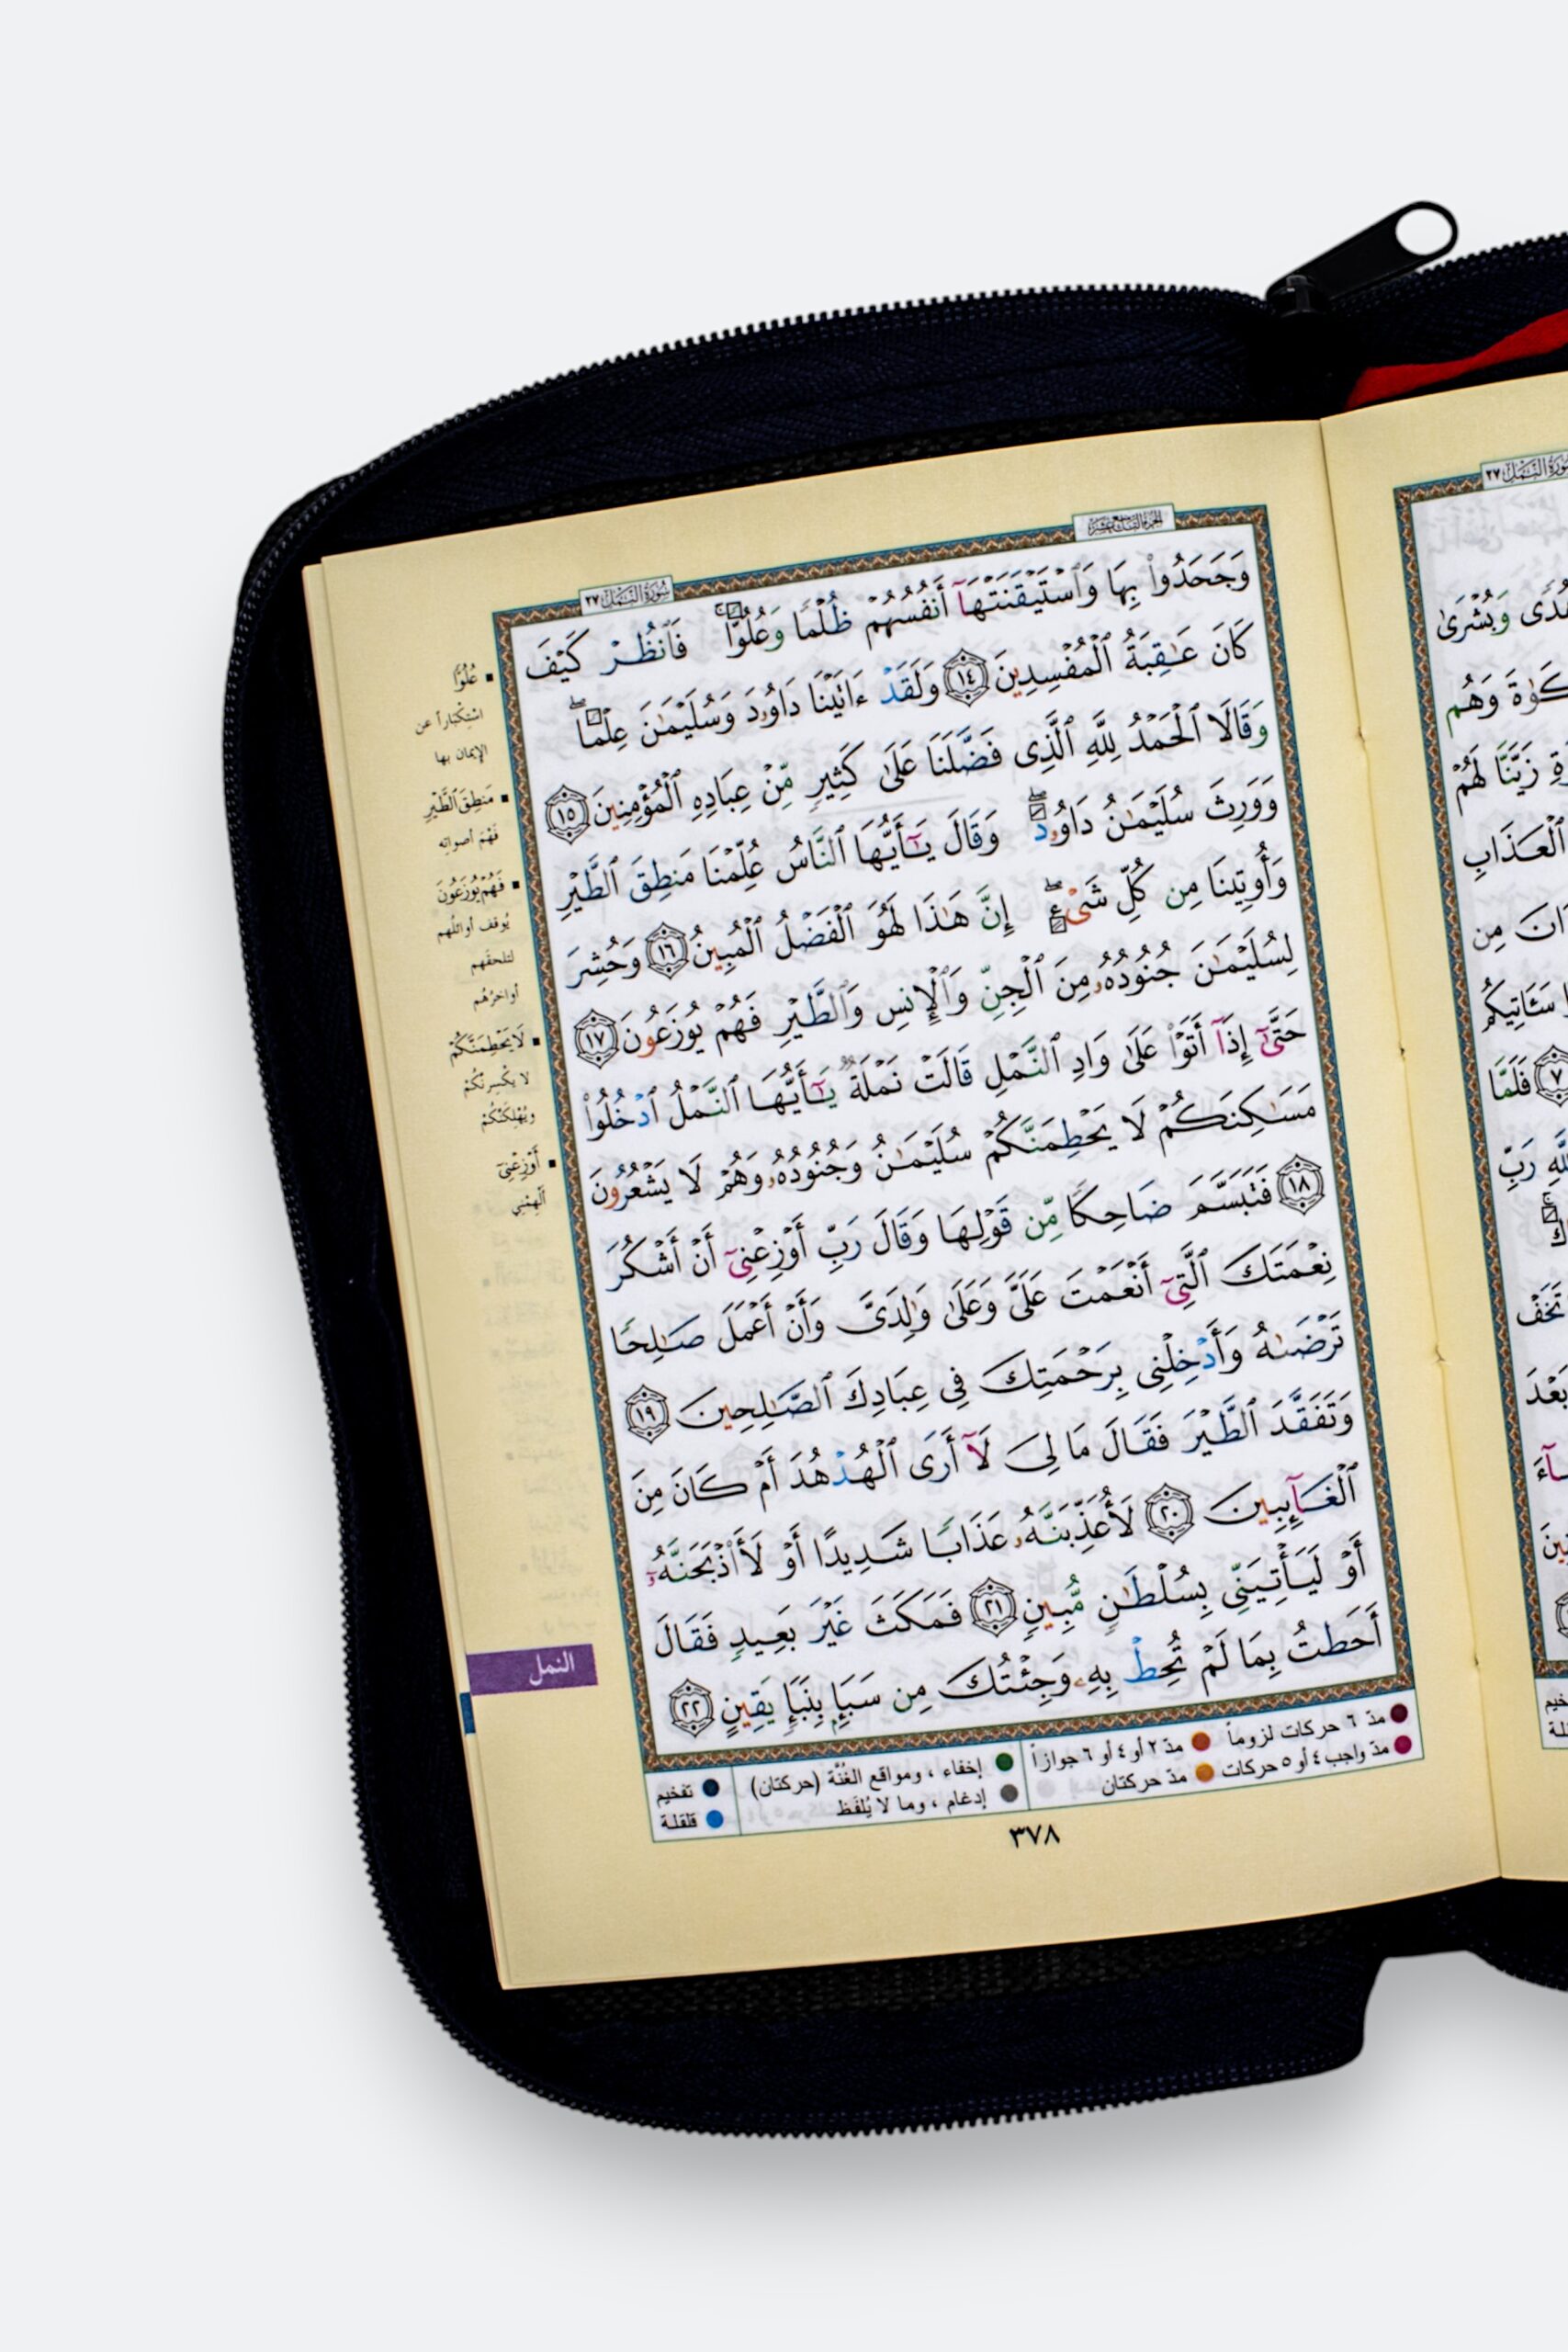 سُورَةُ النَّمْلِ ٢٧
وَجَحَدُوا۟ بِهَا وَٱسْتَيْقَنَتْهَآ أَنفُسُهُمْ ظُلْمًا وَعُلُوًّا ۚ فَٱنظُرْ كَيْفَ
كَانَ عَـٰقِبَةُ ٱلْمُفْسِدِينَ ١٤ وَلَقَدْ ءَاتَيْنَا دَاوُۥدَ وَسُلَيْمَـٰنَ عِلْمًا ۖ
وَقَالَا ٱلْحَمْدُ لِلَّهِ ٱلَّذِى فَضَّلَنَا عَلَىٰ كَثِيرٍ مِّنْ عِبَادِهِ ٱلْمُؤْمِنِينَ ١٥
وَوَرِثَ سُلَيْمَـٰنُ دَاوُۥدَ ۖ وَقَالَ يَـٰٓأَيُّهَا ٱلنَّاسُ عُلِّمْنَا مَنطِقَ ٱلطَّيْرِ
وَأُوتِينَا مِن كُلِّ شَىْءٍ ۖ إِنَّ هَـٰذَا لَهُوَ ٱلْفَضْلُ ٱلْمُبِينُ ١٦ وَحُشِرَ
لِسُلَيْمَـٰنَ جُنُودُهُۥ مِنَ ٱلْجِنِّ وَٱلْإِنسِ وَٱلطَّيْرِ فَهُمْ يُوزَعُونَ ١٧
حَتَّىٰٓ إِذَآ أَتَوْا۟ عَلَىٰ وَادِ ٱلنَّمْلِ قَالَتْ نَمْلَةٌ يَـٰٓأَيُّهَا ٱلنَّمْلُ ٱدْخُلُوا۟
مَسَـٰكِنَكُمْ لَا يَحْطِمَنَّكُمْ سُلَيْمَـٰنُ وَجُنُودُهُۥ وَهُمْ لَا يَشْعُرُونَ
١٨ فَتَبَسَّمَ ضَاحِكًا مِّن قَوْلِهَا وَقَالَ رَبِّ أَوْزِعْنِىٓ أَنْ أَشْكُرَ
نِعْمَتَكَ ٱلَّتِىٓ أَنْعَمْتَ عَلَىَّ وَعَلَىٰ وَٰلِدَىَّ وَأَنْ أَعْمَلَ صَـٰلِحًا
تَرْضَىٰهُ وَأَدْخِلْنِى بِرَحْمَتِكَ فِى عِبَادِكَ ٱلصَّـٰلِحِينَ ١٩
وَتَفَقَّدَ ٱلطَّيْرَ فَقَالَ مَا لِىَ لَآ أَرَى ٱلْهُدْهُدَ أَمْ كَانَ مِنَ
ٱلْغَآئِبِينَ ٢٠ لَأُعَذِّبَنَّهُۥ عَذَابًا شَدِيدًا أَوْ لَأَا۟ذْبَحَنَّهُۥٓ
أَوْ لَيَأْتِيَنِّى بِسُلْطَـٰنٍ مُّبِينٍ ٢١ فَمَكَثَ غَيْرَ بَعِيدٍ فَقَالَ
أَحَطتُ بِمَا لَمْ تُحِطْ بِهِۦ وَجِئْتُكَ مِن سَبَإٍۭ بِنَبَإٍ يَقِينٍ ٢٢
عُلُوًّا
اسْتِكْبَاراً عن
الإيمان بها
مَنطِقَ ٱلطَّيْرِ
فَهْمَ أصواتِه
فَهُمْ يُوزَعُونَ
يُوقف أوائلُهم
لتلحقهم
أواخرُهُم
لَا يَحْطِمَنَّكُمْ
لا يكْسِرنَّكُمْ
ويُهْلِكَنَّكُمْ
أَوْزِعْنِىٓ
ألْهِمْنِي
النمل
مدّ ٦ حركات لزوماً مدّ ٢ أو ٤ أو ٦ جوازاً
مدّ واجب ٤ أو ٥ حركات مدّ حركتان
إخفاء ، ومواقع الغُنَّة (حركتان)
إدغام ، وما لا يُلفَظ
تفخيم
قلقلة
٣٧٨